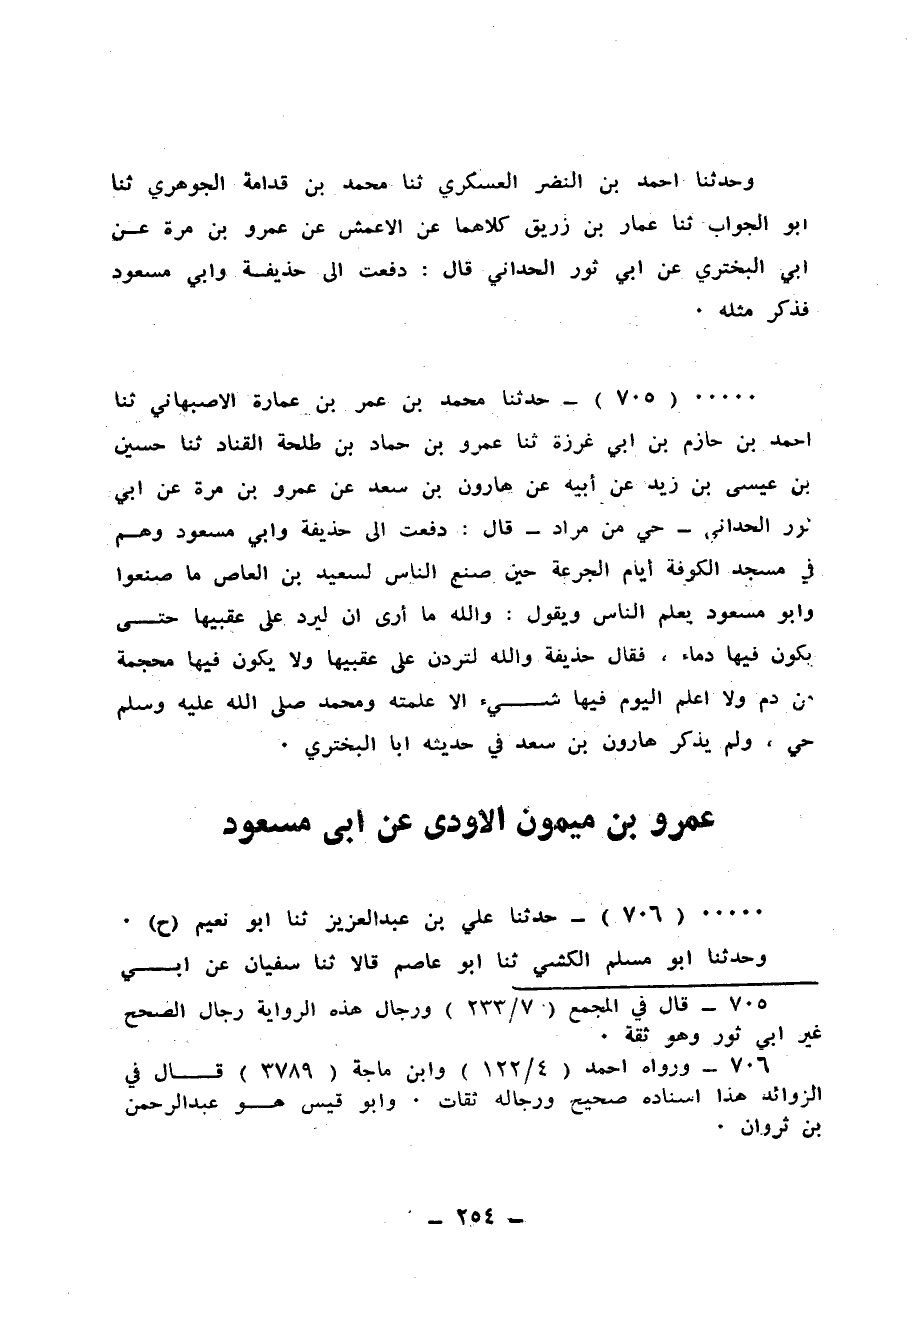 وحدثنا احمد بن النضر العسكري ثنا محمد بن قدامة الجوهري ثنا
ابو الجواب ثنا عمار بن زريق كلاهما عن الاعمش عن عمرو بن مرة عـن
ابي البختري عن ابي ثور الحداني قال : دفعت الى حذيفـة وابي مسعود
فذكر مثله ٠
٠٠٠٠٠ ( ٧٠٥ ) ـ حدثنا محمد بن عمر بن عمارة الاصبهاني ثنا
احمد بن حازم بن ابي غرزة ثنا عمرو بن حماد بن طلحة القناد ثنا حسين
بن عيسى بن زيد عن أبيه عن هارون بن سعد عن عمرو بن مرة عن ابي
ثور الحداني ـ حي من مراد ـ قال : دفعت الى حذيفة وابي مسعود وهـم
في مسجد الكوفة أيام الجرعة حين صنع الناس لسعيد بن العاص ما صنعوا
وابو مسعود يعلم الناس ويقول : والله ما أرى ان ليرد على عقبيها حتـــى
يكون فيها دماء ، فقال حذيفة والله لتردن على عقبيها ولا يكون فيها محجمة
من دم ولا اعلم اليوم فيها شـــــيء الا علمته ومحمد صلى الله عليه وسلم
حي ، ولم يذكر هارون بن سعد في حديثه ابا البختري ٠
عمرو بن ميمون الاودى عن ابى مسعود
٠٠٠٠٠ ( ٧٠٦ ) ـ حدثنا علي بن عبدالعزيز ثنا ابو نعيم (ح) ٠
وحدثنا ابو مسلم الكشي ثنا ابو عاصم قالا ثنا سفيان عن ابـــــي
٧٠٥ ـ قال في المجمع ( ٢٣٣/٧ ) ورجال هذه الرواية رجال الصحح
غير ابي ثور وهو ثقة ٠
٧٠٦ ـ ورواه احمد ( ١٢٢/٤ ) وابن ماجة ( ٣٧٨٩ ) قـــــال في
الزوائد هذا اسناده صحيح ورجاله ثقات ٠ وابو قيس هـــو عبدالرحمن
بن ثروان ٠
ـ ٢٥٤ ـ